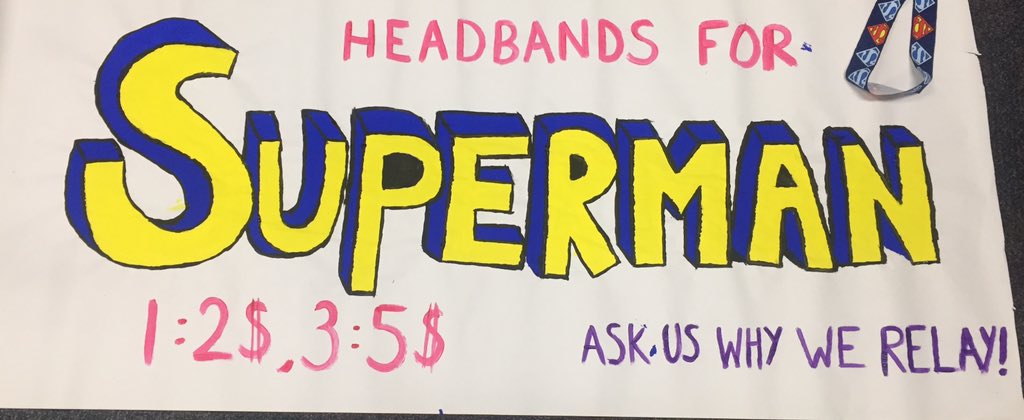 HEADBANDS FOR
SUPERMAN
1:2$, 3:5$
ASK US WHY WE RELAY!